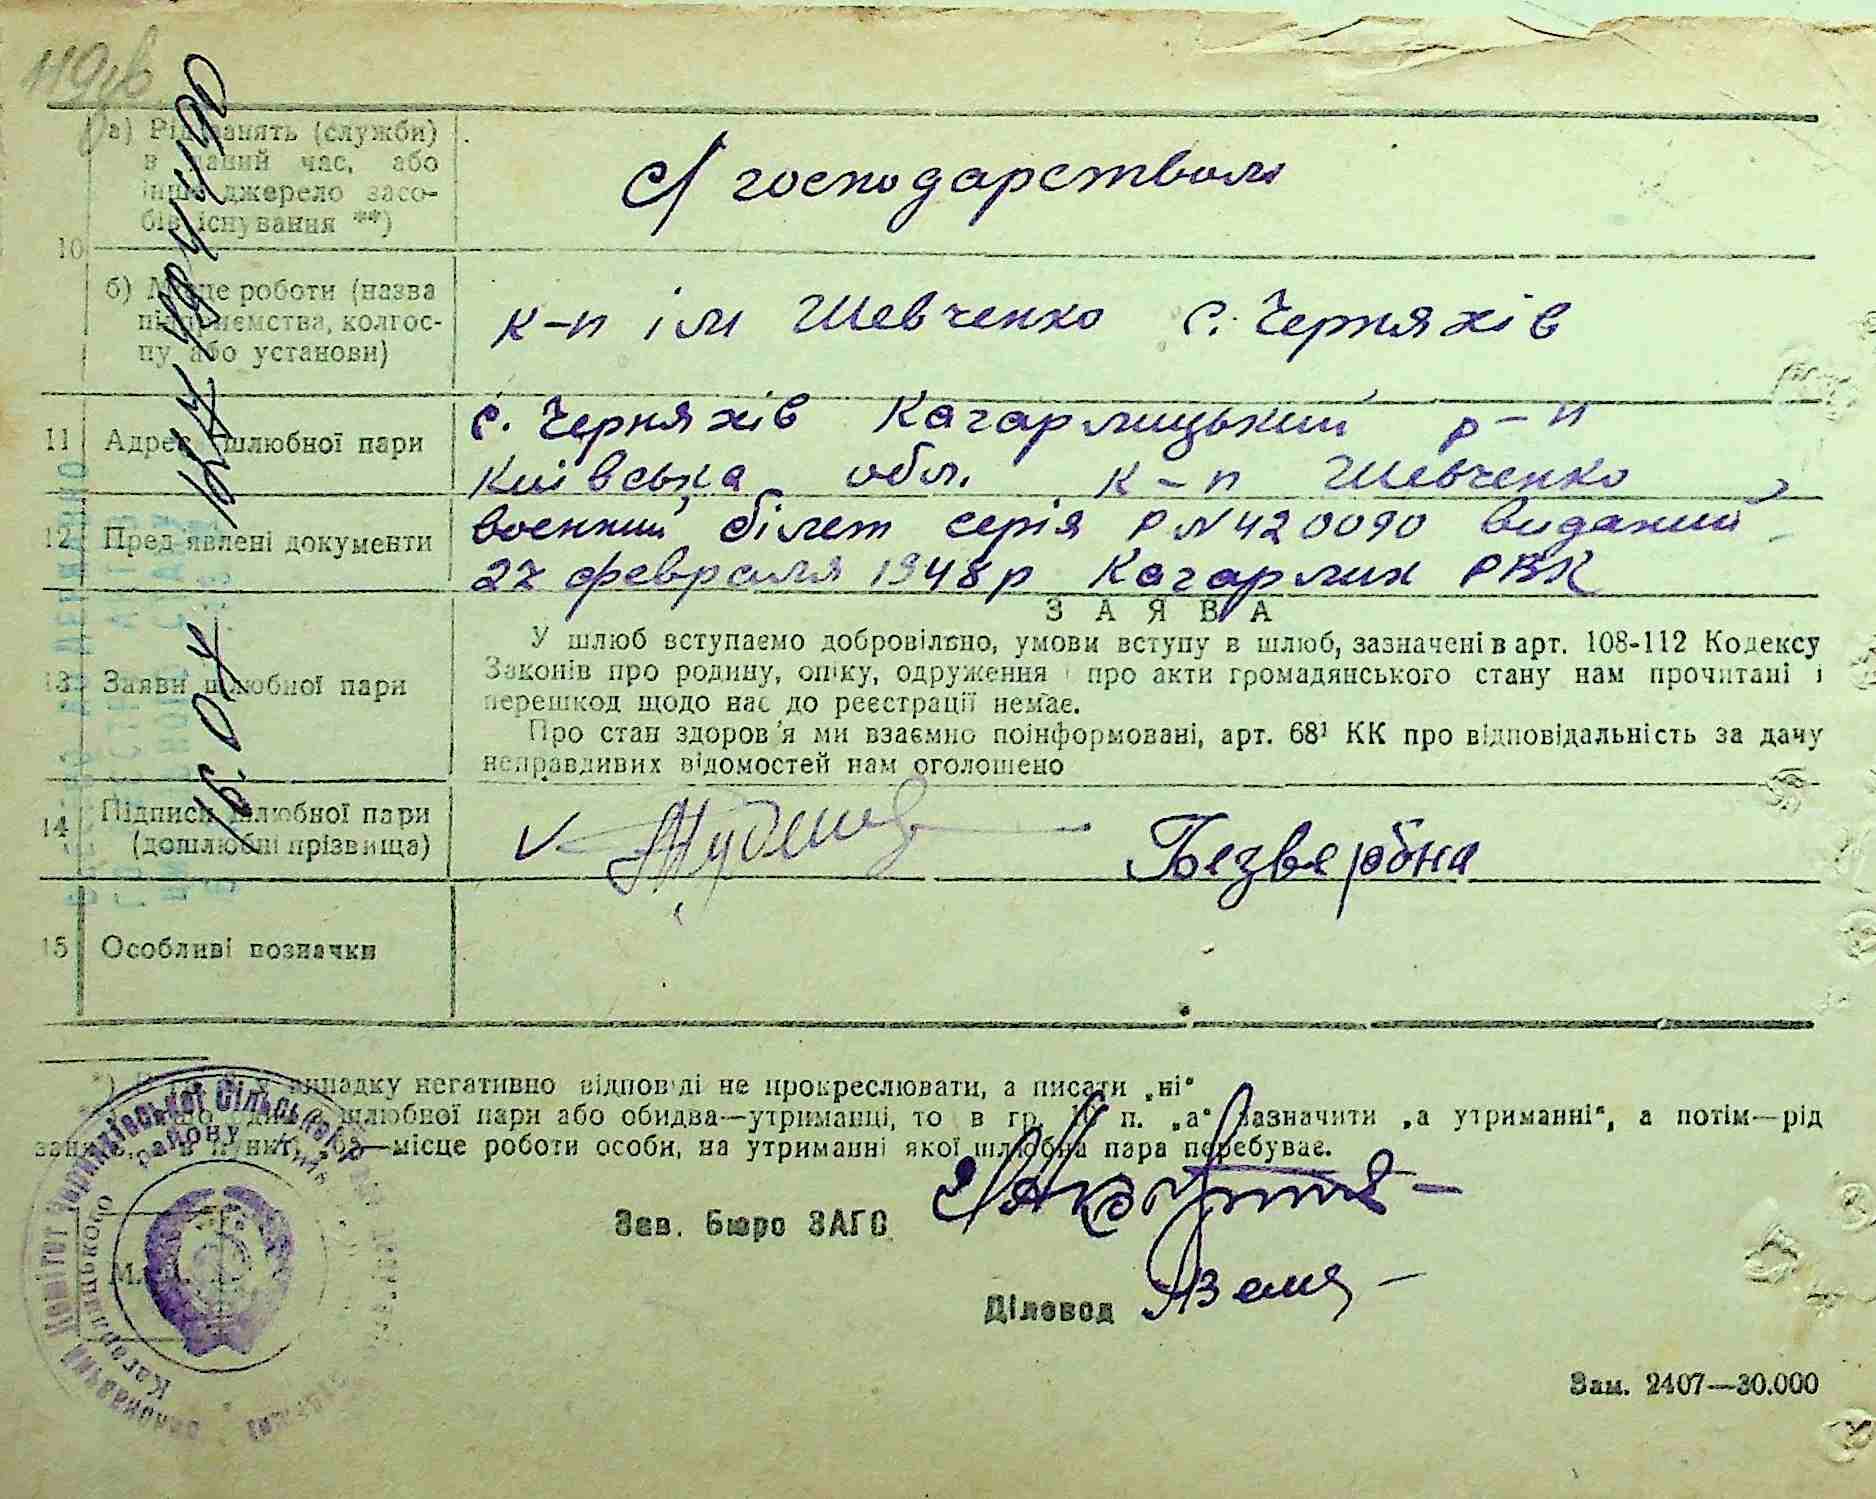 а) Рід занять (служби)
в даний час, або
інше джерело засо-
бів існування **)
С/ господарством
10
б) Місце роботи (назва
підприємства, колгос-
пу або установи)
к-п ім Шевченко с. Черняхів
11 Адреса шлюбної пари
с. Черняхів Кагарлицький р-н
Київська обл. к-п Шевченко
12 Пред'явлені документи
военний білет серія Р N 420090 виданий
27 февраля 1948р Кагарлик РВК
13 Заяви шлюбної пари
ЗАЯВА
У шлюб вступаємо добровільно, умови вступу в шлюб, зазначені в арт. 108-112 Кодексу
Законів про родину, опіку, одруження і про акти громадянського стану нам прочитані і
перешкод щодо нас до реєстрації немає.
Про стан здоров'я ми взаємно поінформовані, арт. 68¹ КК про відповідальність за дачу
неправдивих відомостей нам оголошено
14 Підписи шлюбної пари
(дошлюбні прізвища)
Безвербна
15 Особливі позначки
*) випадку негативно відповіді не прокреслювати, а писати „ні"
шлюбної пари або обидва—утриманці, то в гр. 10 п. „а" зазначити „а утриманні", а потім—рід
занять, а в пункті „б"—місце роботи особи, на утриманні якої шлюбна пара перебуває.
Зав. Бюро ЗАГС
Діловод
М.
Кагарлицького району
Зам. 2407—30.000